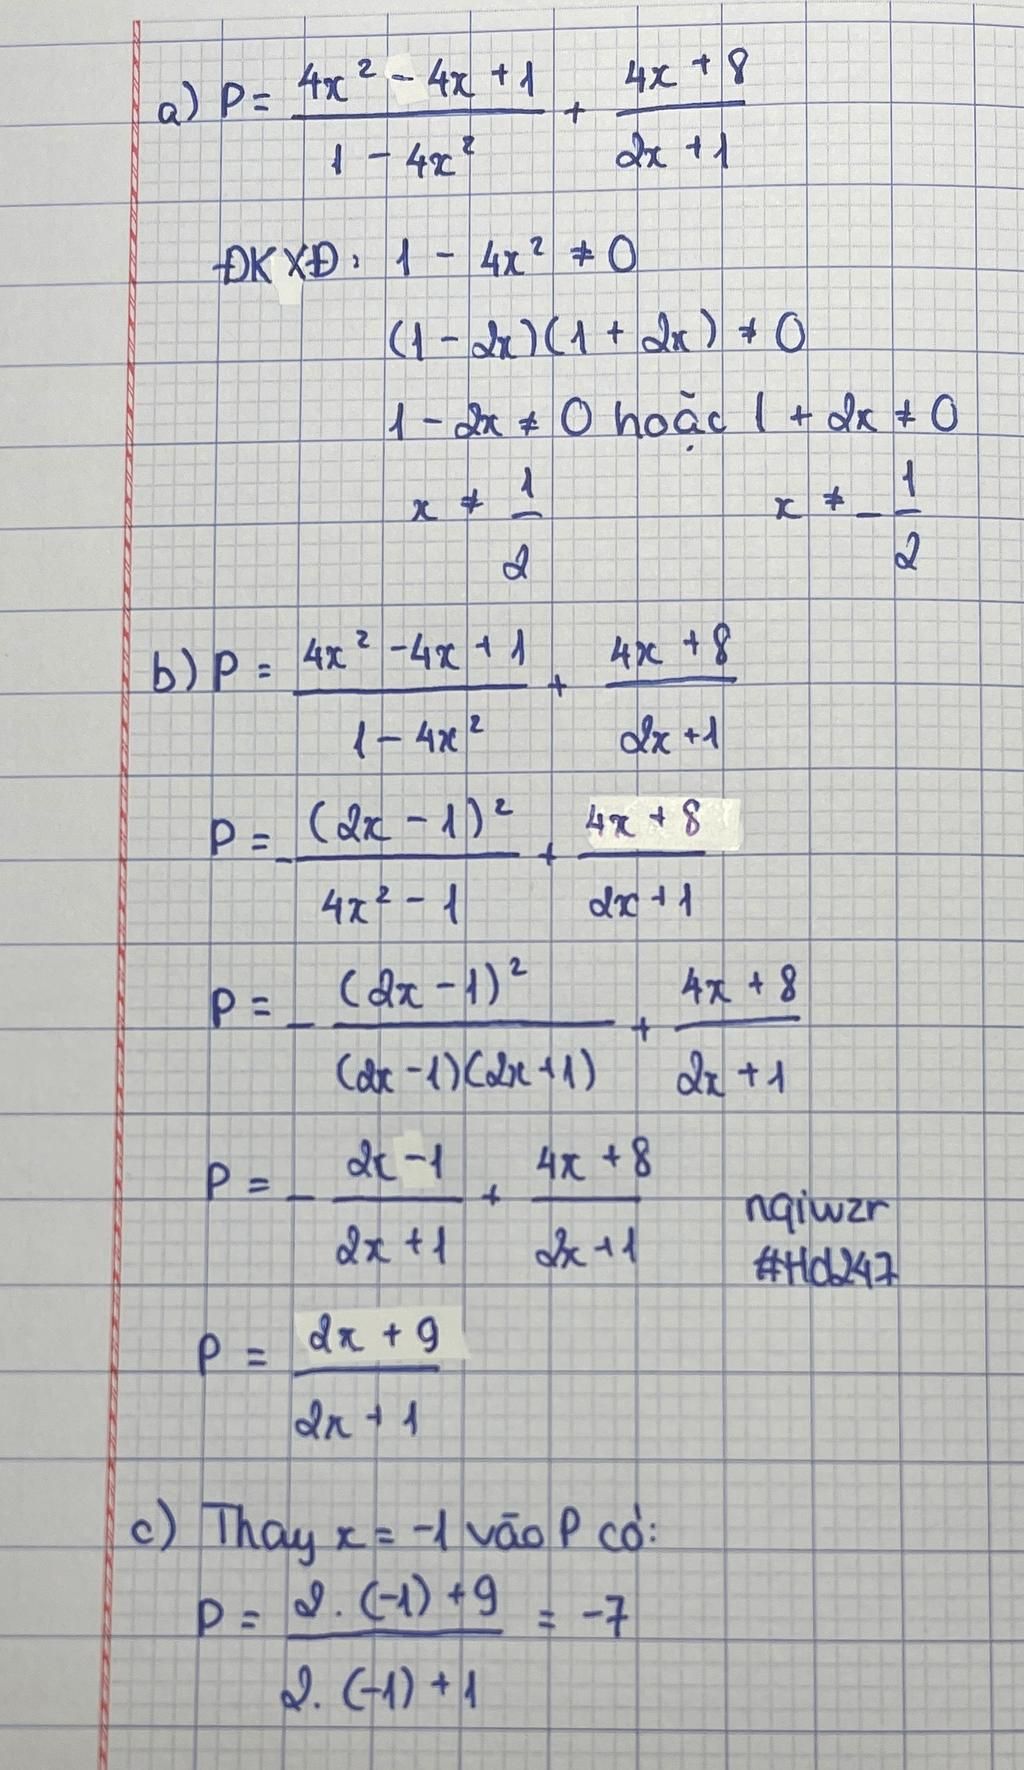 a) P = (4x² - 4x + 1)/(1 - 4x²) + (4x + 8)/(2x + 1)
ĐKXĐ: 1 - 4x² ≠ 0
(1 - 2x)(1 + 2x) ≠ 0
1 - 2x ≠ 0 hoặc 1 + 2x ≠ 0
x ≠ 1/2 x ≠ -1/2
b) P = (4x² - 4x + 1)/(1 - 4x²) + (4x + 8)/(2x + 1)
P = -(2x - 1)²/(4x² - 1) + (4x + 8)/(2x + 1)
P = -(2x - 1)²/((2x - 1)(2x + 1)) + (4x + 8)/(2x + 1)
P = -(2x - 1)/(2x + 1) + (4x + 8)/(2x + 1)
nqiwzr
#Hd247
P = (2x + 9)/(2x + 1)
c) Thay x = -1 vào P có:
P = (2. (-1) + 9)/(2. (-1) + 1) = -7